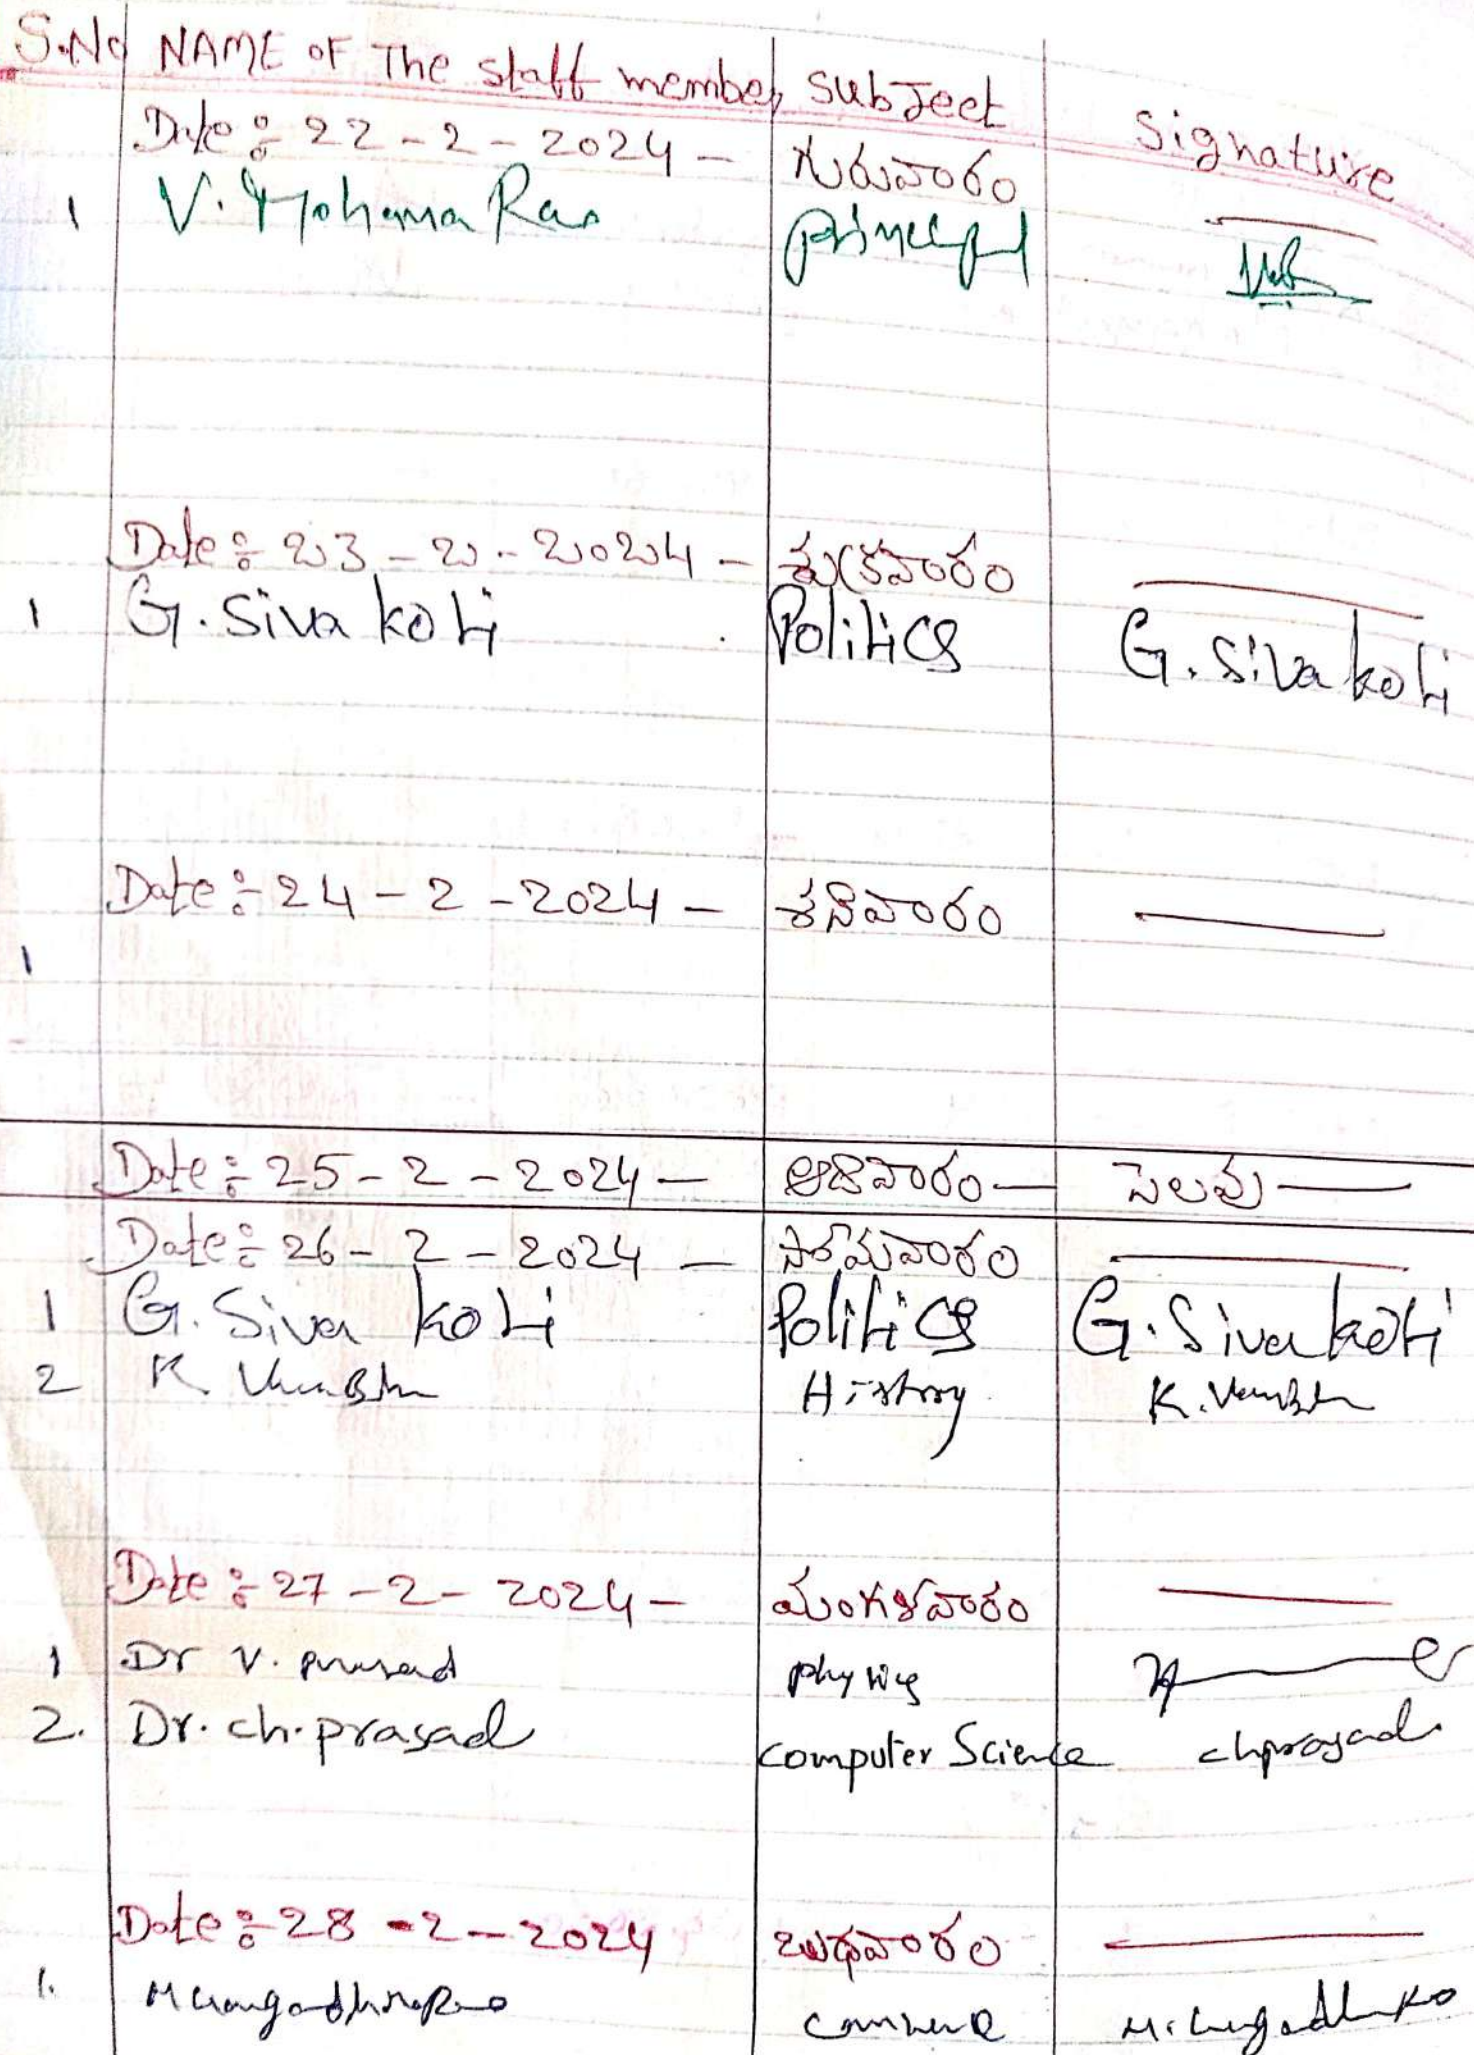 S.No NAME OF The staff member subject Signature
Date :- 22 - 2 - 2024 - గురువారం
1 V. Mohana Rao principal
Date :- 23 - 2 - 2024 - శుక్రవారం
1 G. Siva koti Politics G. Siva koti
Date :- 24 - 2 - 2024 - శనివారం
1
Date :- 25 - 2 - 2024 - ఆదివారం - సెలవు
Date :- 26 - 2 - 2024 - సోమవారం
1 G. Siva koti Politics G. Siva koti
2 K. History K.
Date :- 27 - 2 - 2024 - మంగళవారం
1 Dr V. prasad physics
2. Dr. ch. prasad computer Science chprasad
Date :- 28 - 2 - 2024 బుధవారం
1. commerce